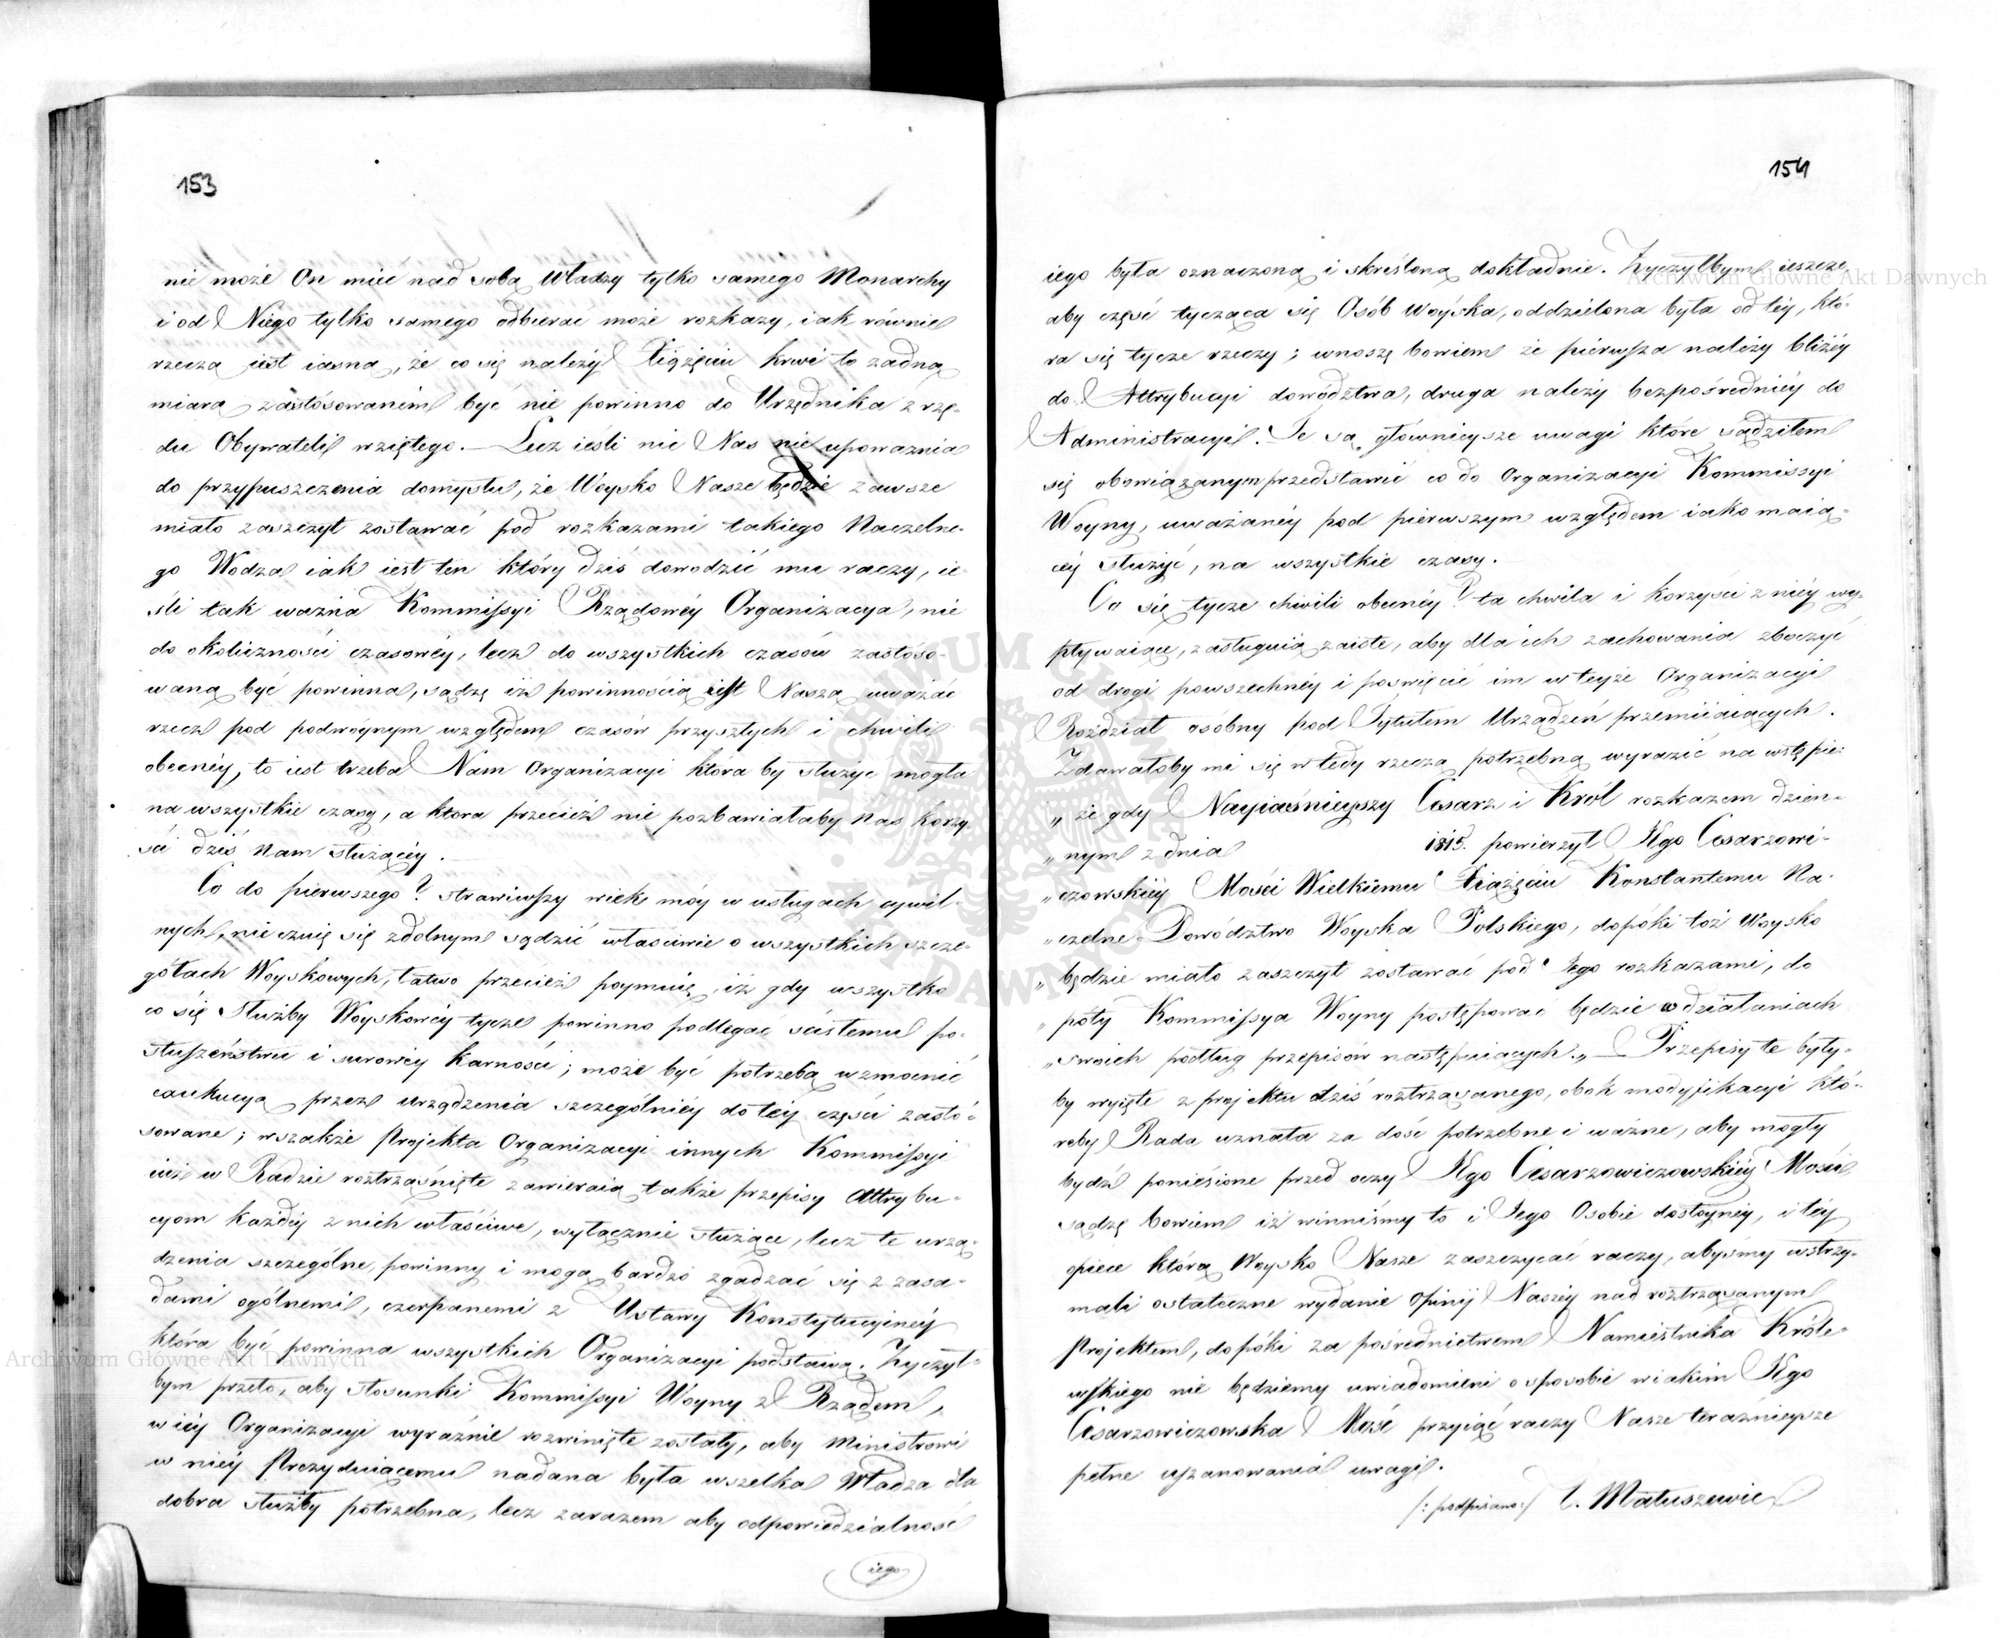 153
nie może On mieć nad sobą Władzy tylko samego Monarchy
i od Niego tylko samego odbierać może rozkazy, iak równie
rzeczą iest iasną, że co się należy Xiążęciu krwi to żadną
miarą zastósowanem być nie powinno do Urzędnika z rzę-
du Obywateli wziętego. — Lecz ieśli nic Nas nie upoważnia
do przypuszczenia domysłu, że Woysko Nasze będzie zawsze
miało zaszczyt zostawać pod rozkazami takiego Naczelne-
go Wodza iak iest ten który dziś dowodzić mu raczy, ie-
śli tak ważna Kommissyi Rządowéy Organizacya, nie
do okoliczności czasowéy, lecz do wszystkich czasów zastóso-
waną być powinna, sądzę iż powinnością iest Naszą uważać
rzecz pod podwóynym względem czasów przyszłych i chwili
obecnéy, to iest trzeba Nam Organizacyi która by służyć mogła
na wszystkie czasy, a która przecież nie pozbawiałaby Nas korzy-
ści dziś Nam służącéy.
Co do pierwszego? strawiwszy wiek móy w usługach cywil-
nych, nie czuię się zdolnym sądzić właściwie o wszystkich szcze-
gółach Woyskowych, łatwo przecież poymuię, iż gdy wszystko
co się służby Woyskowéy tycze powinno podlegać ścisłemu po-
słuszeństwu i surowéy karności; może być potrzebą wzmocnić
exekucyą przez urządzenia szczególniéy do téy części zastó-
sowane; wszakże Projekta Organizacyi innych Kommissyi
iuż w Radzie roztrząśnięte zawieraią także przepisy Attrybu-
cyom każdéy z nich właściwe, wyłącznie służące, lecz te urzą-
dzenia szczególne, powinny i mogą bardzo zgadzać się z zasa-
dami ogólnemi, czerpanemi z Ustawy Konstytucyinéy
która być powinna wszystkich Organizacyi podstawą. Życzył-
bym przeto, aby stosunki Kommissyi Woyny z Rządem,
w iéy Organizacyi wyraźnie rozwinięte zostały, aby Ministrowi
w niéy Prezyduiącemu nadana była wszelka Władza dla
dobra służby potrzebna, lecz zarazem aby odpowiedzialność
iego
154
iego była oznaczoną i skreśloną dokładnie. Życzyłbym ieszcze
aby część tycząca się Osób Woyska, oddzielona była od téy, któ-
ra się tycze rzeczy; wnoszę bowiem że pierwsza należy bliżéy
do Attrybucyi dowództwa, druga należy bezpośredniéy do
Administracyi. Te są główniejsze uwagi które sądziłem
się obowiązanym przedstawić co do Organizacyi Kommissyi
Woyny, uważanéy pod pierwszym względem iako maią-
céy służyć, na wszystkie czasy.
Co się tycze chwili obecnéy? ta chwila i korzyści z niéy wy-
pływaiące, zasługuią zaiste, aby dla ich zachowania zboczyć
od drogi powszechnéy i poswięcić im w teyże Organizacyi
Rozdział osóbny pod Tytułem Urządzeń przemiiaiących.
Zdawałoby mi się wtedy rzeczą potrzebną wyrazić na wstępie:
„ że gdy Nayiaśnieyszy Cesarz i Król rozkazem dzien-
„ nym z dnia 1815. powierzył Jego Cesarzowi-
„ czowskiéy Mości Wielkiemu Xiążęciu Konstantemu Na-
„ czelne Dowództwo Woyska Polskiego, dopóki toż Woysko
„ będzie miało zaszczyt zostawać pod Jego rozkazami, do
„ póty Kommissya Woyny postępować będzie w działaniach
„ swoich podług przepisów następuiących." — Przepisy te były-
by wyięte z projektu dziś roztrząsanego, obok modyfikacyi któ-
reby Rada uznała za dość potrzebne i ważne, aby mogły
bydź poniesione przed oczy Jego Cesarzowiczowskiéy Mości
sądzę bowiem iż winniśmy to i Jego Osobie dostoynéy, i téy
opiece którą Woysko Nasze zaszczycać raczy, abyśmy wstrzy-
mali ostateczne wydanie Opinij Naszéy nad roztrząsanym
Projektem, dopóki za pośrednictwem Namiestnika Króle-
wskiego nie będziemy uwiadomieni o sposobie w iakim Jego
Cesarzowiczowska Mość przyiąć raczy Nasze teraźnieysze
pełne uszanowania uwagi.
/: podpisano :/ T. Matuszewic
Archiwum Główne Akt Dawnych
Archiwum Główne Akt Dawnych